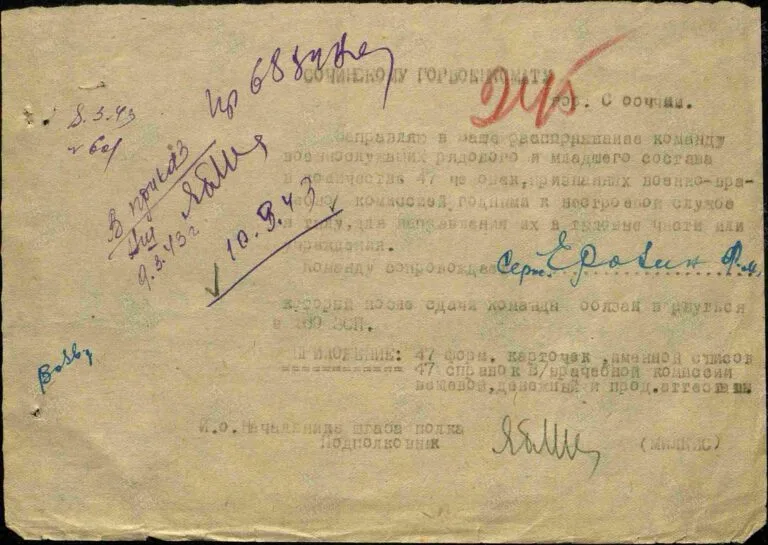 СОЧИНСКОМУ ГОРВОЕНКОМАТУ
245
гор. С о ч и.
8.3.43
В приказ
9.3.43 г
10.3.43
Направляю в ваше распоряжение команду
военнослужащих рядового и младшего состава
в количестве 47 человек, признанных военно-вра-
комиссией годными к нестроевой службе
в тылу, для направления их в тыловые части или
учреждения.
Команду сопровождает Серж. Еровин
который после сдачи команды обязан вернуться
в ЗСП.
ПРИЛОЖЕНИЕ: 47 форм. карточек, именной список
47 справок в/врачебной комиссии
вещевой, денежный и прод. аттестаты.
И.о. Начальника штаба полка
Подполковник